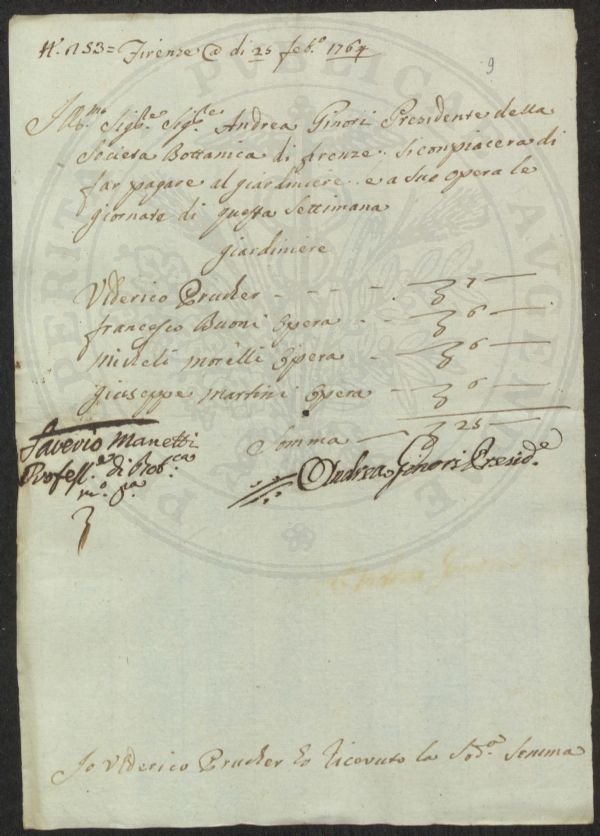 N.° 153 = Firenze @ dì 25 feb.° 1764
9
Ill.mo Sig.re Sig.re Andrea Ginori Presidente della
Società Bottanica di firenze. Si conpiacera di
far pagare al giardiniere e a Sue opera le
giornate di questa Settimana
giardiniere
Vlderico Prucker - - - - 7
francesco Buoni Opera - 6
Micheli Morelli Opera - 6
Giuseppe Martini Opera - 6
Somma 25
Saverio Manetti
Profess.e di Bot.ca
m.° pa.
Andrea Ginori Presid.e
Io Vlderico Prucker ho Ricevuto la Sod.a Somma
PERITA PVBLICAE AVGENDAE